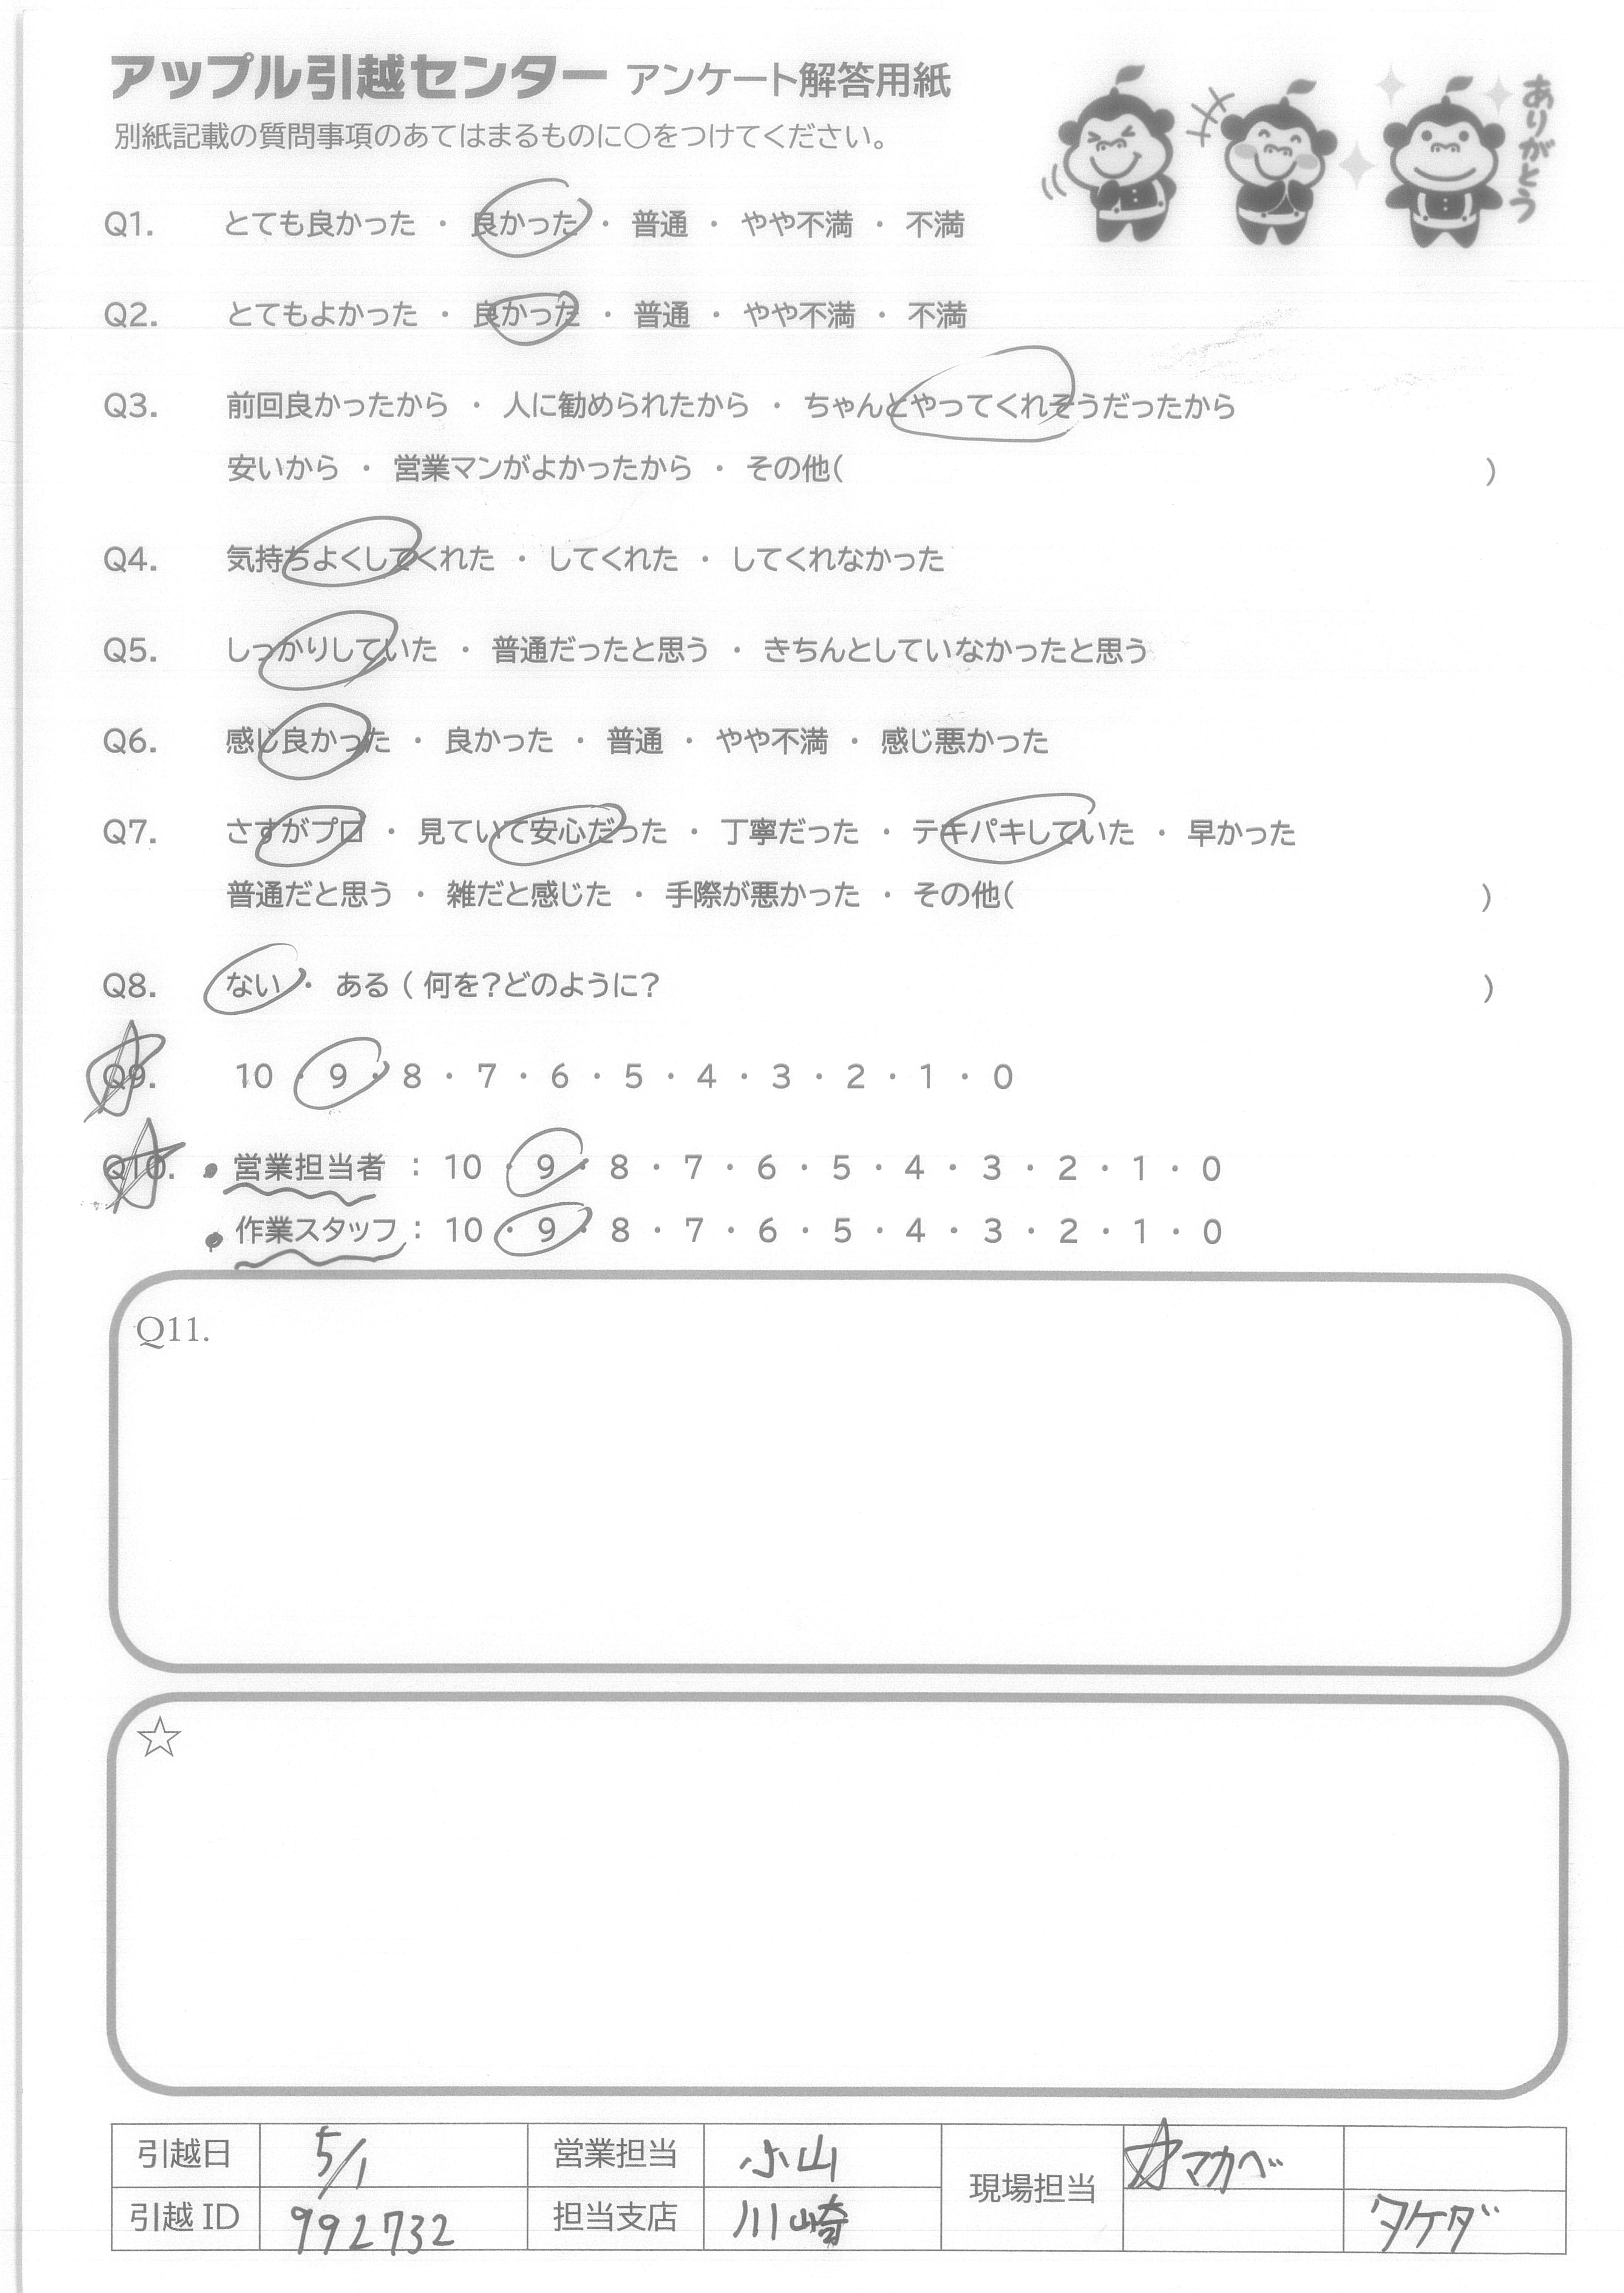 アップル引越センター アンケート解答用紙
別紙記載の質問事項のあてはまるものに〇をつけてください。
ありがとう
Q1. とても良かった ・ 良かった ・ 普通 ・ やや不満 ・ 不満
Q2. とてもよかった ・ 良かった ・ 普通 ・ やや不満 ・ 不満
Q3. 前回良かったから ・ 人に勧められたから ・ ちゃんとやってくれそうだったから
安いから ・ 営業マンがよかったから ・ その他( )
Q4. 気持ちよくしてくれた ・ してくれた ・ してくれなかった
Q5. しっかりしていた ・ 普通だったと思う ・ きちんとしていなかったと思う
Q6. 感じ良かった ・ 良かった ・ 普通 ・ やや不満 ・ 感じ悪かった
Q7. さすがプロ ・ 見ていて安心だった ・ 丁寧だった ・ テキパキしていた ・ 早かった
普通だと思う ・ 雑だと感じた ・ 手際が悪かった ・ その他( )
Q8. ない ・ ある ( 何を?どのように? )
Q9. 10 ・ 9 ・ 8 ・ 7 ・ 6 ・ 5 ・ 4 ・ 3 ・ 2 ・ 1 ・ 0
Q10. 営業担当者 : 10 ・ 9 ・ 8 ・ 7 ・ 6 ・ 5 ・ 4 ・ 3 ・ 2 ・ 1 ・ 0
作業スタッフ : 10 ・ 9 ・ 8 ・ 7 ・ 6 ・ 5 ・ 4 ・ 3 ・ 2 ・ 1 ・ 0
Q11.
☆
引越日 5/1 営業担当 小山 現場担当 ☆マカベ
引越 ID 992732 担当支店 川崎 タケダ